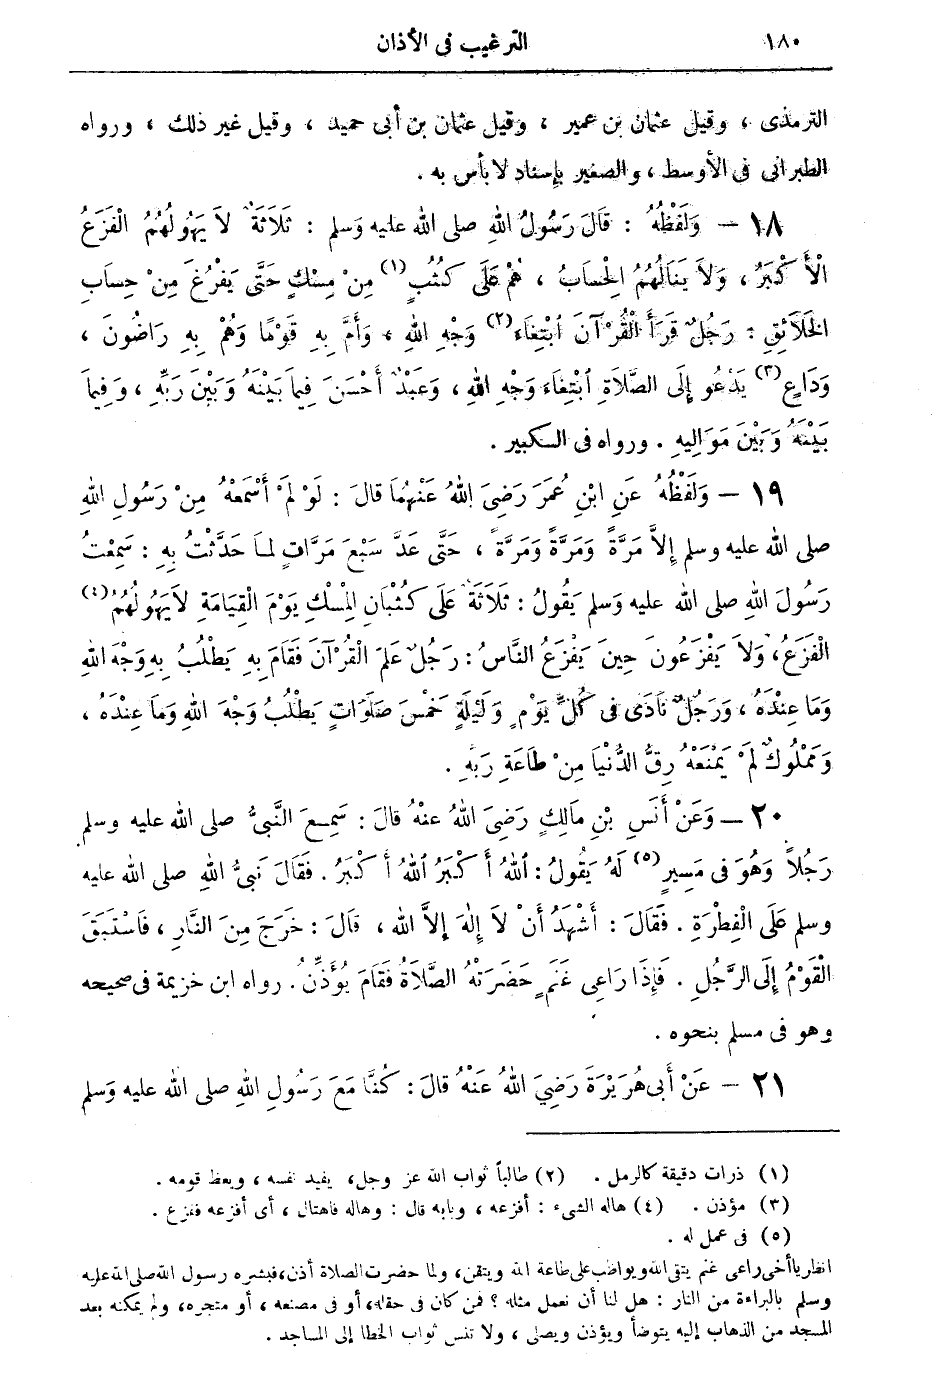 ١٨٠
الترغيب فى الأذان
الترمذى ، وقيل عثمان بن عمير ، وقيل عثمان بن أبى حميد ، وقيل غير ذلك ، ورواه
الطبرانى فى الأوسط ، والصغير بإسناد لا بأس به .
١٨ – وَلَفْظُهُ : قَالَ رَسُولُ اللهِ صلى الله عليه وَسلم : ثَلَاثَةٌ لاَ يَهُولُهُمُ الْفَزَعُ
الْأَكْبَرُ ، وَلاَ يَنَالُهُمُ الْحِسَابُ ، هُمْ عَلَى كُثُبٍ (١) مِنْ مِسْكٍ حَتَّى يَفْرُغَ مِنْ حِسَابِ
الْخَلَائِقِ : رَجُلٌ قَرَأَ الْقُرْآنَ ابْتِغَاءَ (٢) وَجْهِ اللهِ ، وَأَمَّ بِهِ قَوْمًا وَهُمْ بِهِ رَاضُونَ ،
وَدَاعٍ (٣) يَدْعُو إِلَى الصَّلَاةِ ابْتِغَاءَ وَجْهِ اللهِ ، وَعَبْدٌ أَحْسَنَ فِيمَا بَيْنَهُ وَبَيْنَ رَبِّهِ ، وَفِيمَا
بَيْنَهُ وَبَيْنَ مَوَالِيهِ . ورواه فى الكبير .
١٩ – وَلَفْظُهُ عَنِ ابْنِ عُمَرَ رَضِىَ اللهُ عَنْهُمَا قَالَ : لَوْ لَمْ أَسْمَعْهُ مِنْ رَسُولِ اللهِ
صلى الله عليه وسلم إِلاَّ مَرَّةً وَمَرَّةً وَمَرَّةً ، حَتَّى عَدَّ سَبْعَ مَرَّاتٍ لمَا حَدَّثْتُ بِهِ : سَمِعْتُ
رَسُولَ اللهِ صلى الله عليه وَسلم يَقُولُ : ثَلَاثَةٌ عَلَى كُثْبَانِ الْمِسْكِ يَوْمَ الْقِيَامَةِ لاَ يَهُولُهُمُ (٤)
الْفَزَعُ ، وَلاَ يَفْزَعُونَ حِينَ يَفْزَعُ النَّاسُ : رَجُلٌ عَلِمَ الْقُرْآنَ فَقَامَ بِهِ يَطْلُبُ بِهِ وَجْهَ اللهِ
وَمَا عِنْدَهُ ، وَرَجُلٌ نَادَى فى كُلِّ يَوْمٍ وَلَيْلَةٍ خَمْسَ صَلَوَاتٍ يَطْلُبُ وَجْهَ اللهِ وَمَا عِنْدَهُ ،
وَمَمْلُوكٌ لَمْ يَمْنَعْهُ رِقُّ الدُّنْيَا مِنْ طَاعَةِ رَبِّهِ .
٢٠ – وَعَنْ أَنَسِ بْنِ مَالِكٍ رَضِىَ اللهُ عَنْهُ قَالَ : سَمِعَ النَّبىُّ صلى الله عليه وسلم
رَجُلاً وَهُوَ فى مَسِيرٍ (٥) لَهُ يَقُولُ : اللهُ أَكْبَرُ اللهُ أَكْبَرُ . فَقَالَ نَبىُّ اللهِ صلى الله عليه
وسلم عَلَى الْفِطْرَةِ . فَقَالَ : أَشْهَدُ أَنْ لاَ إِلٰهَ إِلاَّ الله ، قَالَ : خَرَجَ مِنَ النَّارِ ، فَاسْتَبَقَ
الْقَوْمُ إِلَى الرَّجُلِ . فَإِذَا رَاعِى غَنَمٍ حَضَرَتْهُ الصَّلَاةُ فَقَامَ يُؤَذِّنُ . رواه ابن خزيمة فى صحيحه
وهو فى مسلم بنحوه .
٢١ – عَنْ أَبى هُرَيْرَةَ رَضِيَ اللهُ عَنْهُ قَالَ : كُنَّا مَعَ رَسُولِ اللهِ صلى الله عليه وَسلم
(١) ذرات دقيقة كالرمل . (٢) طالباً ثواب الله عز وجل، يفيد نفسه ، ويعظ قومه .
(٣) مؤذن . (٤) هاله الشىء : أفزعه ، وبابه قال : وهاله فاهتال ، أى أفزعه ففزع .
(٥) فى عمل له .
انظر يا أخى راعى غنم يتقى الله ويواظب على طاعة الله ويتقن، ولما حضرت الصلاة أذن، فبشره رسول الله صلى الله عليه
وسلم بالبراءة من النار : هل لنا أن نعمل مثله ؟ فمن كان فى حقله، أو فى مصنعه ، أو متجره، ولم يمكنه بعد
المسجد من الذهاب إليه يتوضأ ويؤذن ويصلى ، ولا تنس ثواب الخطا إلى المساجد .